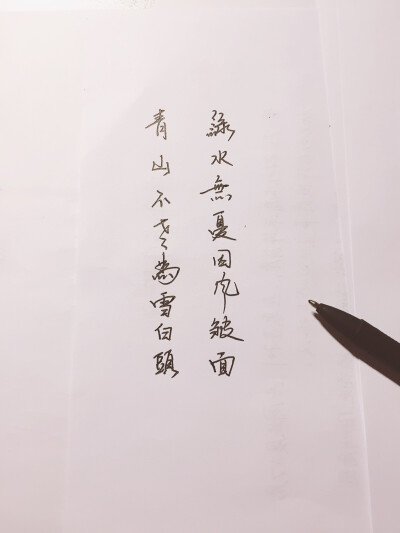 綠水無憂因風皺面
青山不老為雪白頭